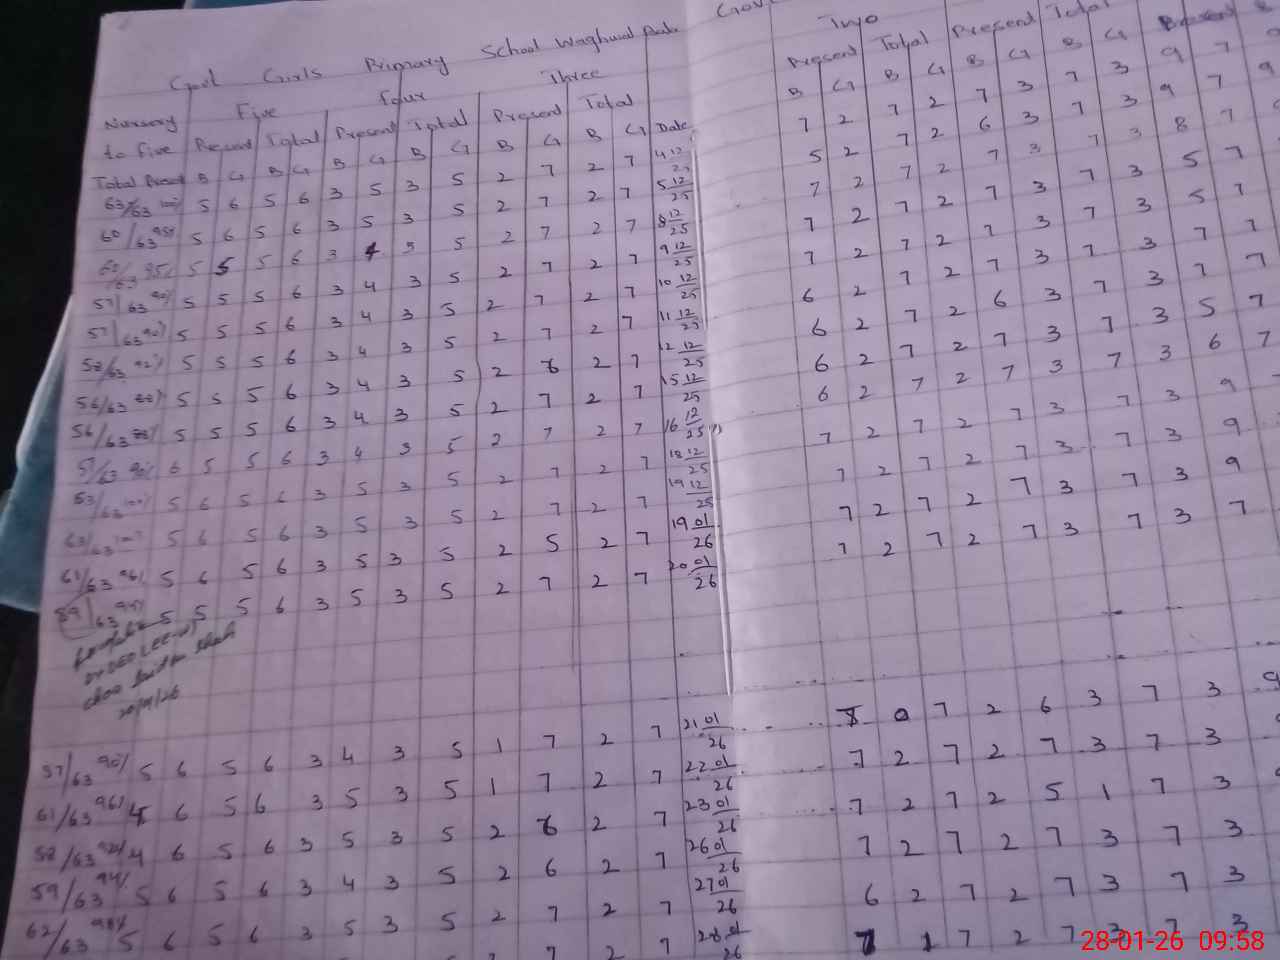 Govt Girls Primary School Waghund Date Govt
Five Four Three Two
Nursery to five Present Total Present Total Present Total Date Present Total Present Total Present
Total Present B G B G B G B G B G B G B G B G B G B G
63/63 100% 5 6 5 6 3 5 3 5 2 7 2 7 4 12/25 7 2 7 2 7 3 7 3 9 7 9
60/63 95% 5 6 5 6 3 5 3 5 2 7 2 7 5 12/25 5 2 7 2 6 3 7 3 9 7 9
5 5 5 6 3 4 3 5 2 7 2 7 8 12/25 7 2 7 2 7 3 7 3 8 7
57/63 90% 5 5 5 6 3 4 3 5 2 7 2 7 9 12/25 7 2 7 2 7 3 7 3 5 7
57/63 90% 5 5 5 6 3 4 3 5 2 7 2 7 10 12/25 7 2 7 2 7 3 7 3 5 7
58/63 92% 5 5 5 6 3 4 3 5 2 7 2 7 11 12/25 6 2 7 2 7 3 7 3 7 7
56/63 5 5 5 6 3 4 3 5 2 6 2 7 12 12/25 6 2 7 2 6 3 7 3 7 7
56/63 5 5 5 6 3 4 3 5 2 7 2 7 15 12/25 6 2 7 2 7 3 7 3 5 7
57/63 90% 6 5 5 6 3 4 3 5 2 7 2 7 16 12/25 6 2 7 2 7 3 7 3 6 7
5 6 5 6 3 5 3 5 2 7 2 7 18 12/25 7 2 7 2 7 3 7 3 9
63/63 5 6 5 6 3 5 3 5 2 7 2 7 19 12/25 7 2 7 2 7 3 7 3 9
61/63 96% 5 6 5 6 3 5 3 5 2 5 2 7 19 01/26 7 2 7 2 7 3 7 3 9
59/63 94% 5 5 5 6 3 5 3 5 2 7 2 7 20 01/26 7 2 7 2 7 3 7 3 7
20/01/26
57/63 90% 5 6 5 6 3 4 3 5 1 7 2 7 21 01/26 8 0 7 2 6 3 7 3 9
61/63 96% 4 6 5 6 3 5 3 5 1 7 2 7 22 01/26 7 2 7 2 7 3 7 3 9
58/63 92% 4 6 5 6 3 5 3 5 2 6 2 7 23 01/26 7 2 7 2 5 1 7 3 9
59/63 94% 5 6 5 6 3 4 3 5 2 6 2 7 26 01/26 7 2 7 2 7 3 7 3
62/63 98% 5 6 5 6 3 5 3 5 2 7 2 7 27 01/26 6 2 7 2 7 3 7 3
2 7 2 7 28 01/26 7 1 7 2 7 3 7 3
28-01-26 09:58